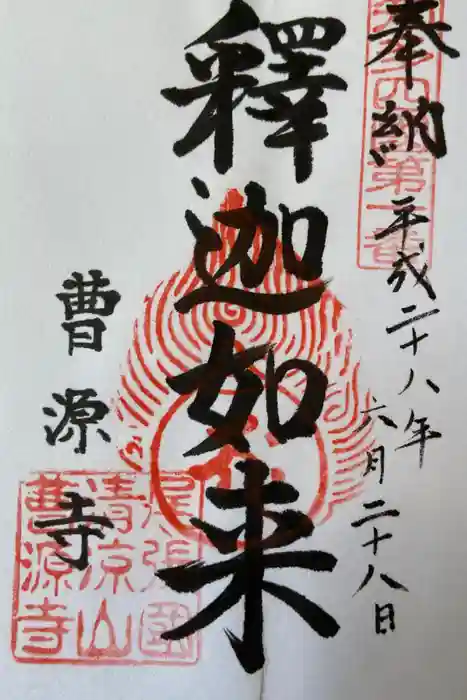 奉納
平成二十八年
六月二十八日
釋迦如来
曹源寺
尾張國
清凉山
曹源寺